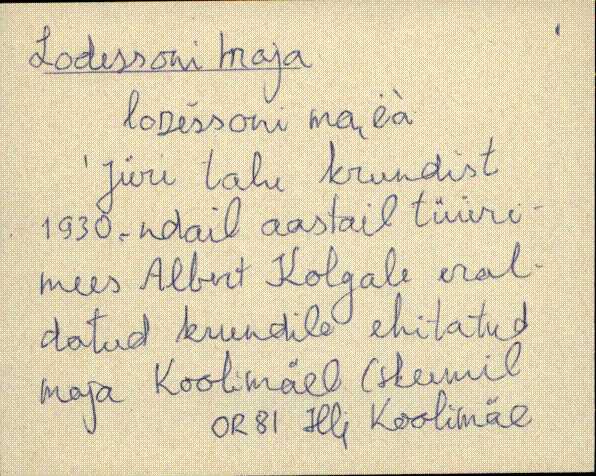 Lodessoni maja
loDéssoni ma, ëà
'Jüri talu krundist
1930.-ndail aastail tüüri-
mees Albert Kolgale eral-
datud krundile ehitatud
maja Koolimäel (skeemil
OR 81 Hlj Koolimäe